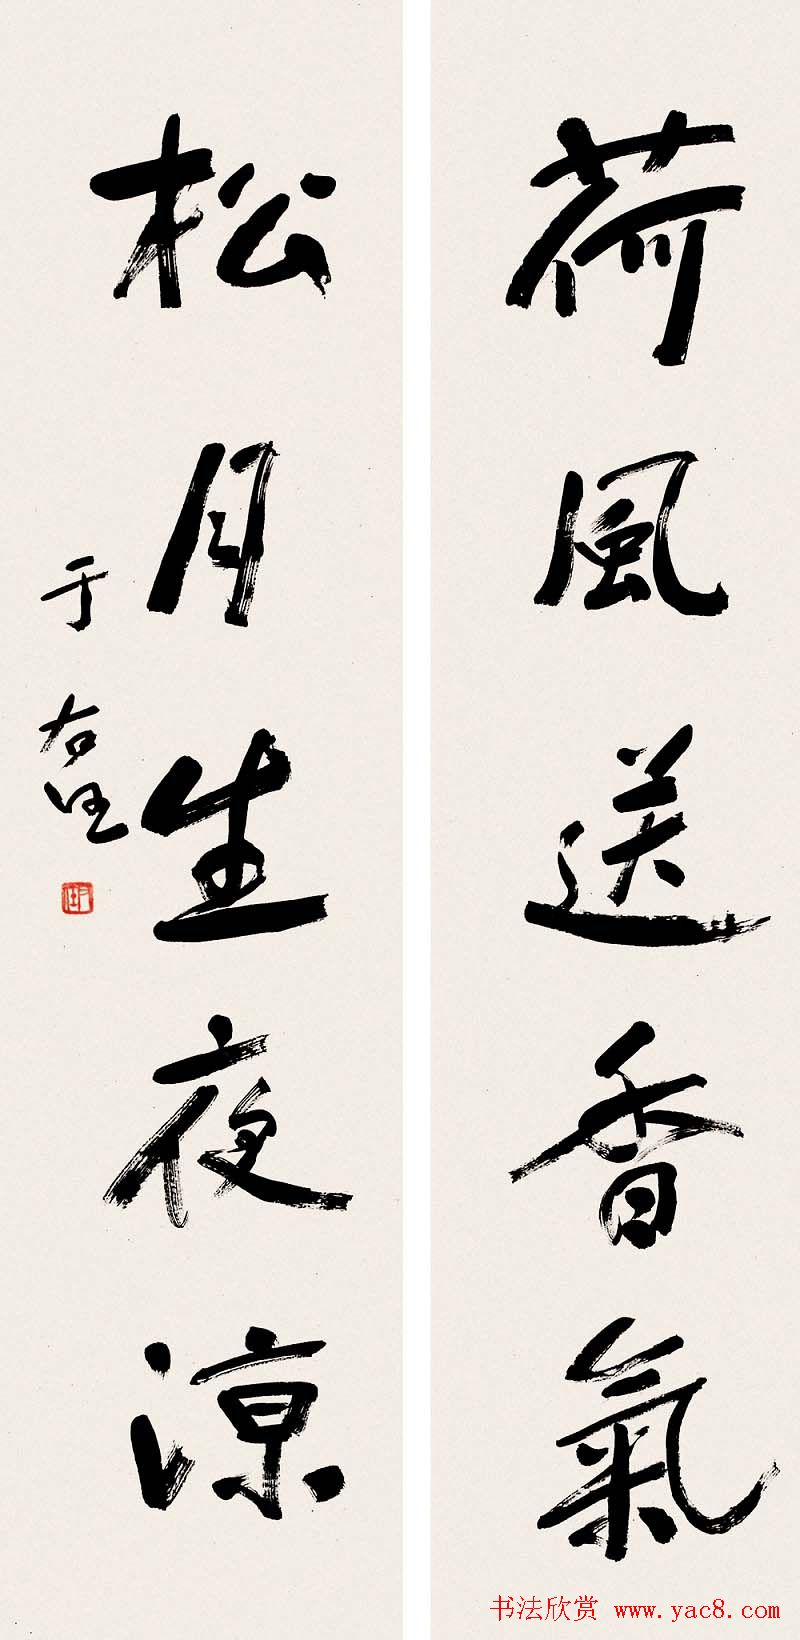 荷風送香氣
松月生夜涼
于右任
书法欣赏 www.yac8.com